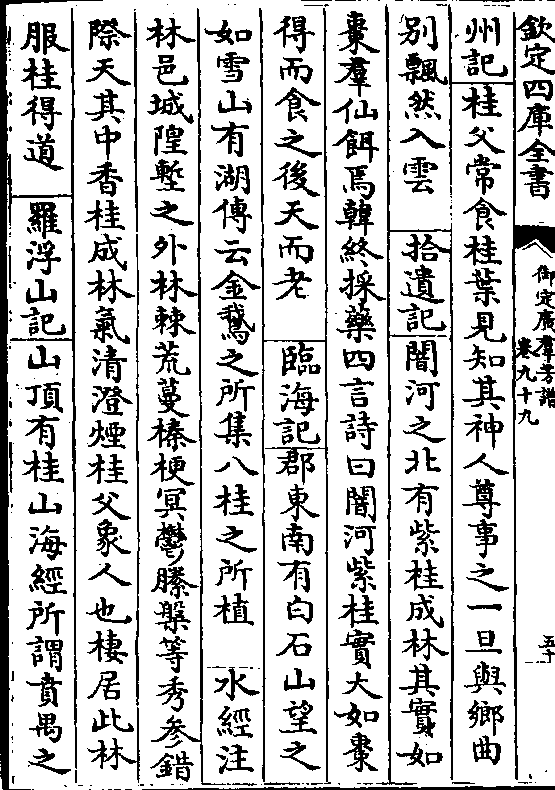 欽定四庫全書
御定廣羣芳譜
卷九十九
五十
州記桂父常食桂葉見知其神人尊事之一旦與鄉曲
别飄然入雲　拾遺記闇河之北有紫桂成林其實如
棗羣仙餌焉韓終採藥四言詩曰闇河紫桂實大如棗
得而食之後天而老　臨海記郡東南有白石山望之
如雪山有湖傳云金鵞之所集八桂之所植　水經注
林邑城隍塹之外林棘荒蔓榛梗冥鬱藤槃等秀參錯
際天其中香桂成林氣清澄煙桂父象人也棲居此林
服桂得道　羅浮山記山頂有桂山海經所謂賁禺之